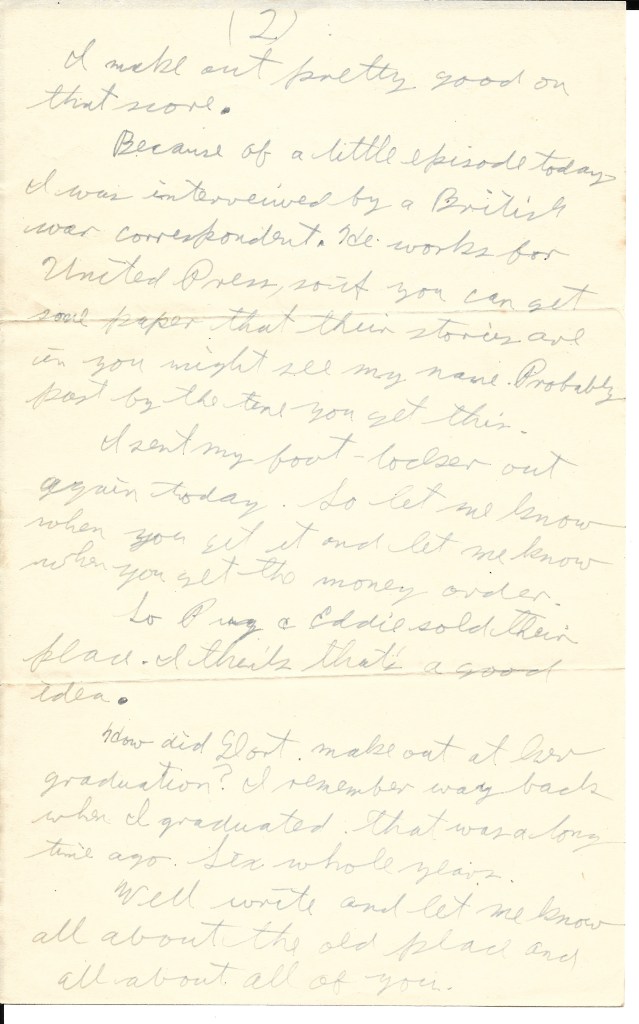 (2)
I make out pretty good on
that score.
Because of a little episode today
I was interveiwed by a British
war correspondent. He works for
United Press, so if you can get
some paper that their stories are
in you might see my name. Probably
past by the time you get this.
I sent my foot-locker out
again today. So let me know
when you get it and let me know
when you get the money order.
So Pug & Eddie sold their
place. I think that's a good
idea.
How did Dort. make out at her
graduation? I remember way back
when I graduated. That was a long
time ago. Six whole years.
Well write and let me know
all about the old place and
all about all of you.